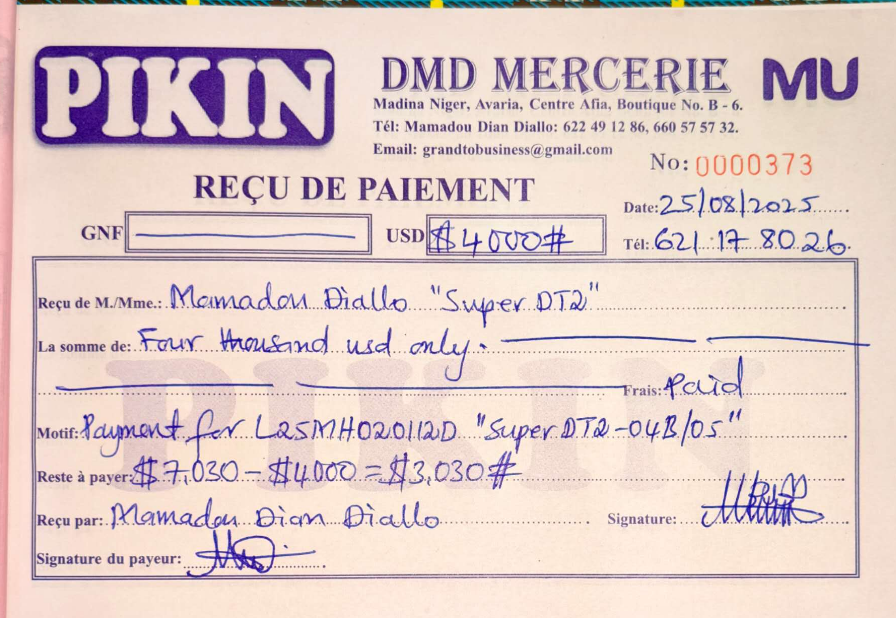 PIKIN
DMD MERCERIE
MU
Madina Niger, Avaria, Centre Afia, Boutique No. B - 6.
Tél: Mamadou Dian Diallo: 622 49 12 86, 660 57 57 32.
Email: grandtobusiness@gmail.com
No: 0000373
REÇU DE PAIEMENT
Date: 25/08/2025
GNF USD $4000#
Tél: 621 17 80 26
Reçu de M./Mme.: Mamadou Diallo "Super DT2"
La somme de: Four thousand usd only.
Frais: Paid
Motif: Payment for L25MH020112D "Super DT2-04B/05"
Reste à payer: $7,030 - $4000 = $3,030#
Reçu par: Mamadou Dian Diallo Signature:
Signature du payeur:
PIKIN